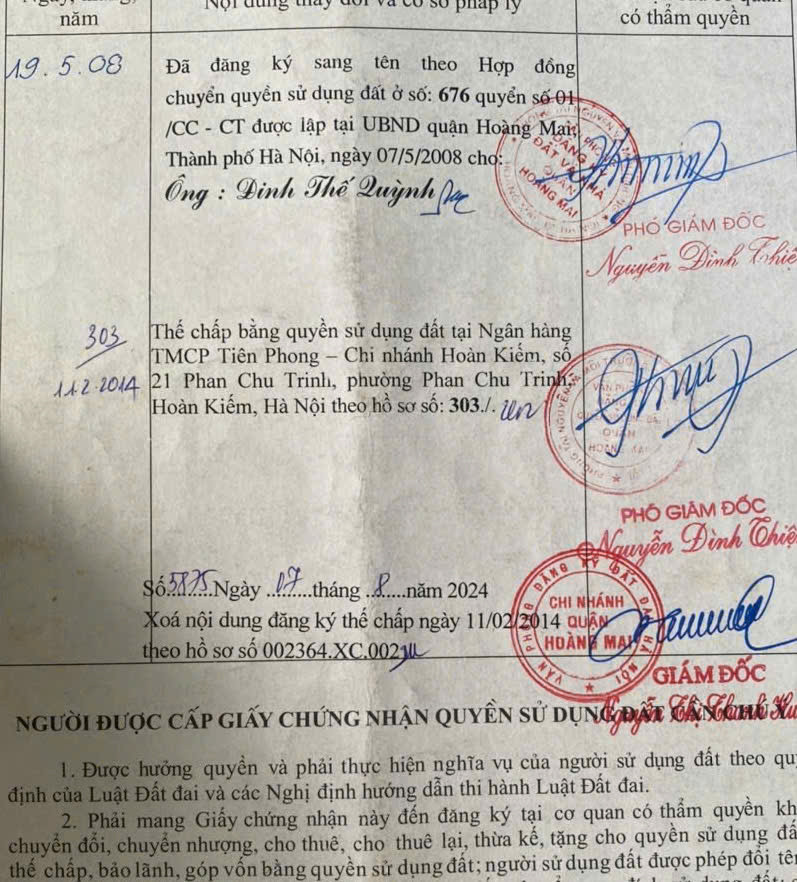 năm
Nội dung thay đổi và cơ sở pháp lý
có thẩm quyền
19.5.08
Đã đăng ký sang tên theo Hợp đồng
chuyển quyền sử dụng đất ở số: 676 quyển số 01
/CC - CT được lập tại UBND quận Hoàng Mai,
Thành phố Hà Nội, ngày 07/5/2008 cho:
Ông : Đinh Thế Quỳnh
HOÀNG MAI
PHÓ GIÁM ĐỐC
Nguyễn Đình Thiệ
303
11.2.2014
Thế chấp bằng quyền sử dụng đất tại Ngân hàng
TMCP Tiên Phong – Chi nhánh Hoàn Kiếm, số
21 Phan Chu Trinh, phường Phan Chu Trinh,
Hoàn Kiếm, Hà Nội theo hồ sơ số: 303./.
QUẬN
PHÓ GIÁM ĐỐC
Nguyễn Đình Thiệ
Số 5875 Ngày 07 tháng 8 năm 2024
Xoá nội dung đăng ký thế chấp ngày 11/02/2014
theo hồ sơ số 002364.XC.002
VĂN PHÒNG ĐĂNG KÝ ĐẤT ĐAI HÀ NỘI
CHI NHÁNH
QUẬN
HOÀNG MAI
GIÁM ĐỐC
NGƯỜI ĐƯỢC CẤP GIẤY CHỨNG NHẬN QUYỀN SỬ DỤNG ĐẤT CẦN CHÚ Ý
1. Được hưởng quyền và phải thực hiện nghĩa vụ của người sử dụng đất theo quy
định của Luật Đất đai và các Nghị định hướng dẫn thi hành Luật Đất đai.
2. Phải mang Giấy chứng nhận này đến đăng ký tại cơ quan có thẩm quyền kh
chuyển đổi, chuyển nhượng, cho thuê, cho thuê lại, thừa kế, tặng cho quyền sử dụng đấ
thế chấp, bảo lãnh, góp vốn bằng quyền sử dụng đất; người sử dụng đất được phép đổi tê